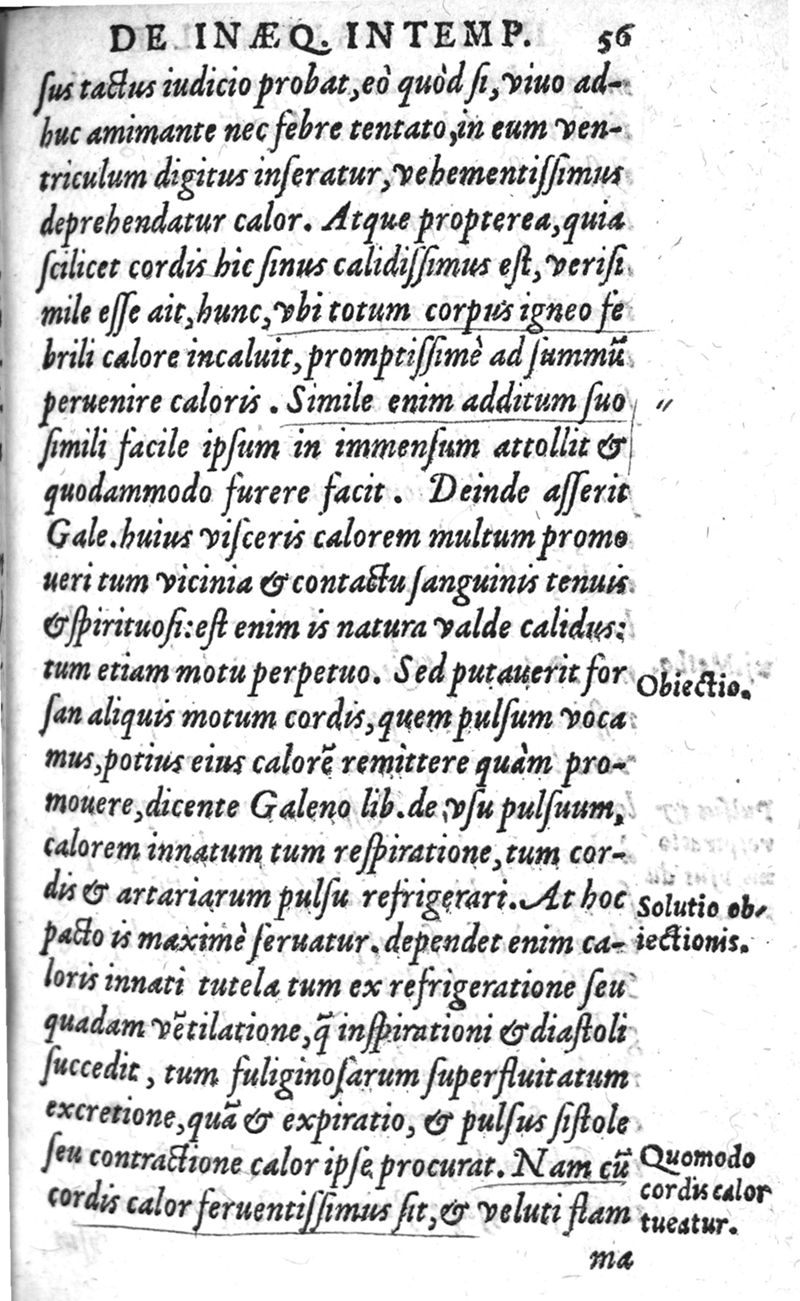 DE INÆQ. INTEMP. 56
ſus tactus iudicio probat, eò quòd ſi, viuo ad-
huc amimante nec febre tentato, in eum ven-
triculum digitus inſeratur, vehementiſſimus
deprehendatur calor. Atque propterea, quia
ſcilicet cordis hic ſinus calidiſſimus eſt, veriſi
mile eſſe ait, hunc, vbi totum corpus igneo fe
brili calore incaluit, promptiſſimè ad ſummũ
peruenire caloris. Simile enim additum ſuo
ſimili facile ipſum in immenſum attollit &
quodammodo furere facit. Deinde aſſerit
Gale. huius viſceris calorem multum promo
ueri tum vicinia & contactu ſanguinis tenuis
& ſpirituoſi: eſt enim is natura valde calidus:
tum etiam motu perpetuo. Sed putauerit for
Obiectio.
ſan aliquis motum cordis, quem pulſum voca
mus, potius eius calorẽ remittere quàm pro-
mouere, dicente Galeno lib. de vſu pulſuum,
calorem innatum tum reſpiratione, tum cor-
dis & artariarum pulſu refrigerari. At hoc
Solutio ob-
pacto is maximè ſeruatur. dependet enim ca-
iectionis.
loris innati tutela tum ex refrigeratione ſeu
quadam vẽtilatione, q̃ inſpirationi & diaſtoli
ſuccedit, tum fuliginoſarum ſuperfluitatum
excretione, quã & expiratio, & pulſus ſiſtole
ſeu contractione calor ipſe procurat. Nam cũ
Quomodo
cordis calor
tueatur.
cordis calor feruentiſſimus ſit, & veluti flam
ma